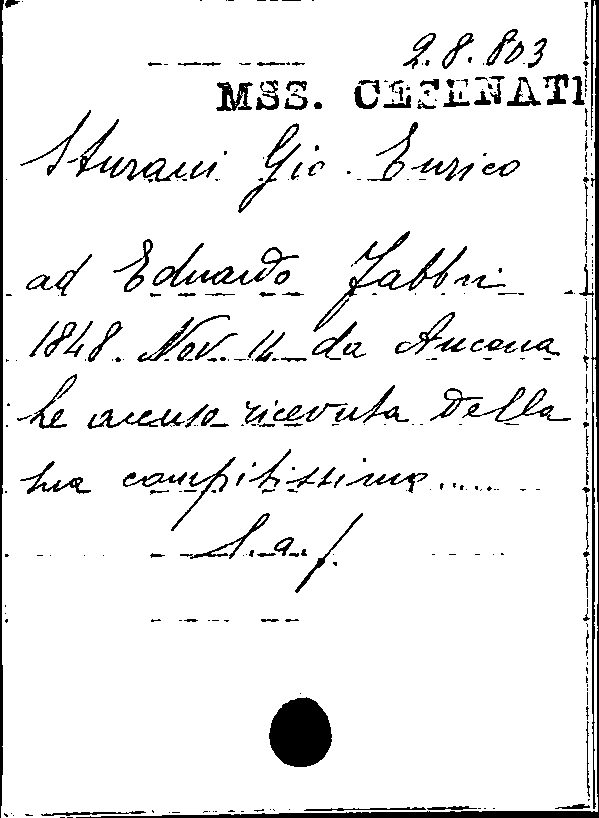 2.8.803
MSS. CESENATI
Sturani Gio. Enrico
ad Eduardo Fabbri
1848. Nov. 14 da Ancona
Le accuso ricevuta della
sua compitissima.....
L.a.f.